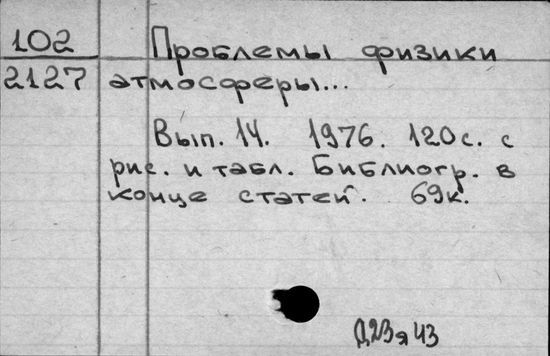 102 Проблемы физики
2127 атмосферы...
Вып. 14. 1976. 120с. с
рис. и табл. Библиогр. в
конце статей. 69к.
Д23я43